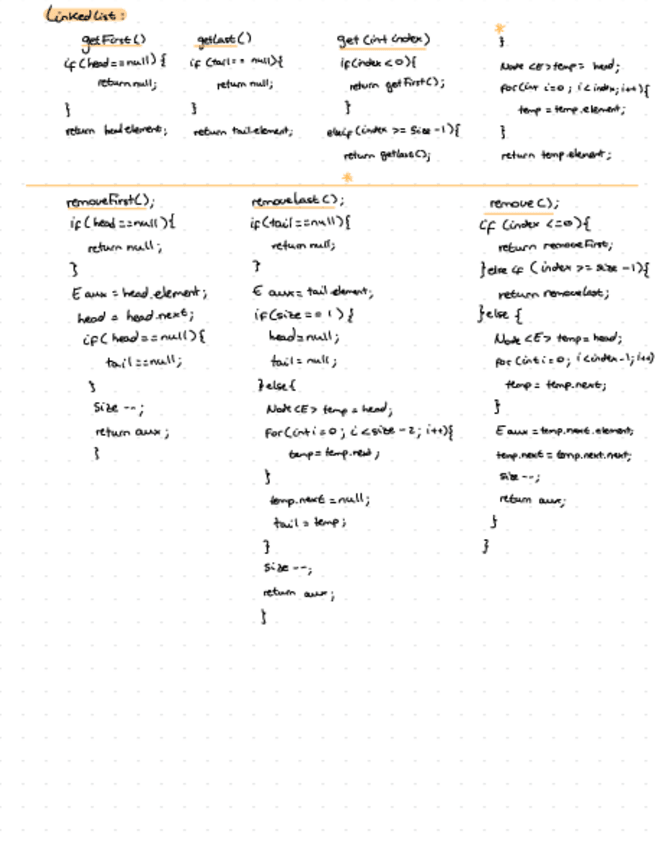 LinkedList:
getFirst()
if(head==null) {
return null;
}
return head.element;
getLast()
if (tail== null){
return null;
}
return tail.element;
get (int index)
if(index<0){
return getFirst();
}
else if (index >= size-1){
return getLast();
*
}
Node <E> temp= head;
for(int i=0; i<index; i++){
temp = temp.element;
}
return temp.element;
*
removeFirst();
if(head==null){
return null;
}
E aux = head.element;
head = head.next;
if(head==null){
tail==null;
}
size --;
return aux;
}
removeLast();
if(tail==null){
return null;
}
E aux= tail.element;
if(size==1) {
head=null;
tail = null;
}else{
Node<E> temp = head;
for(int i=0; i<size-2; i++){
temp= temp.next;
}
temp.next =null;
tail = temp;
}
size --;
return aux;
}
remove();
if (index <=0){
return removeFirst;
}else if (index >= size-1){
return removeLast;
}else {
Node <E> temp= head;
for (int i=0; i<index-1; i++)
temp = temp.next;
}
E aux =temp.next.element;
temp.next = temp.next.next;
size--;
return aux;
}
}